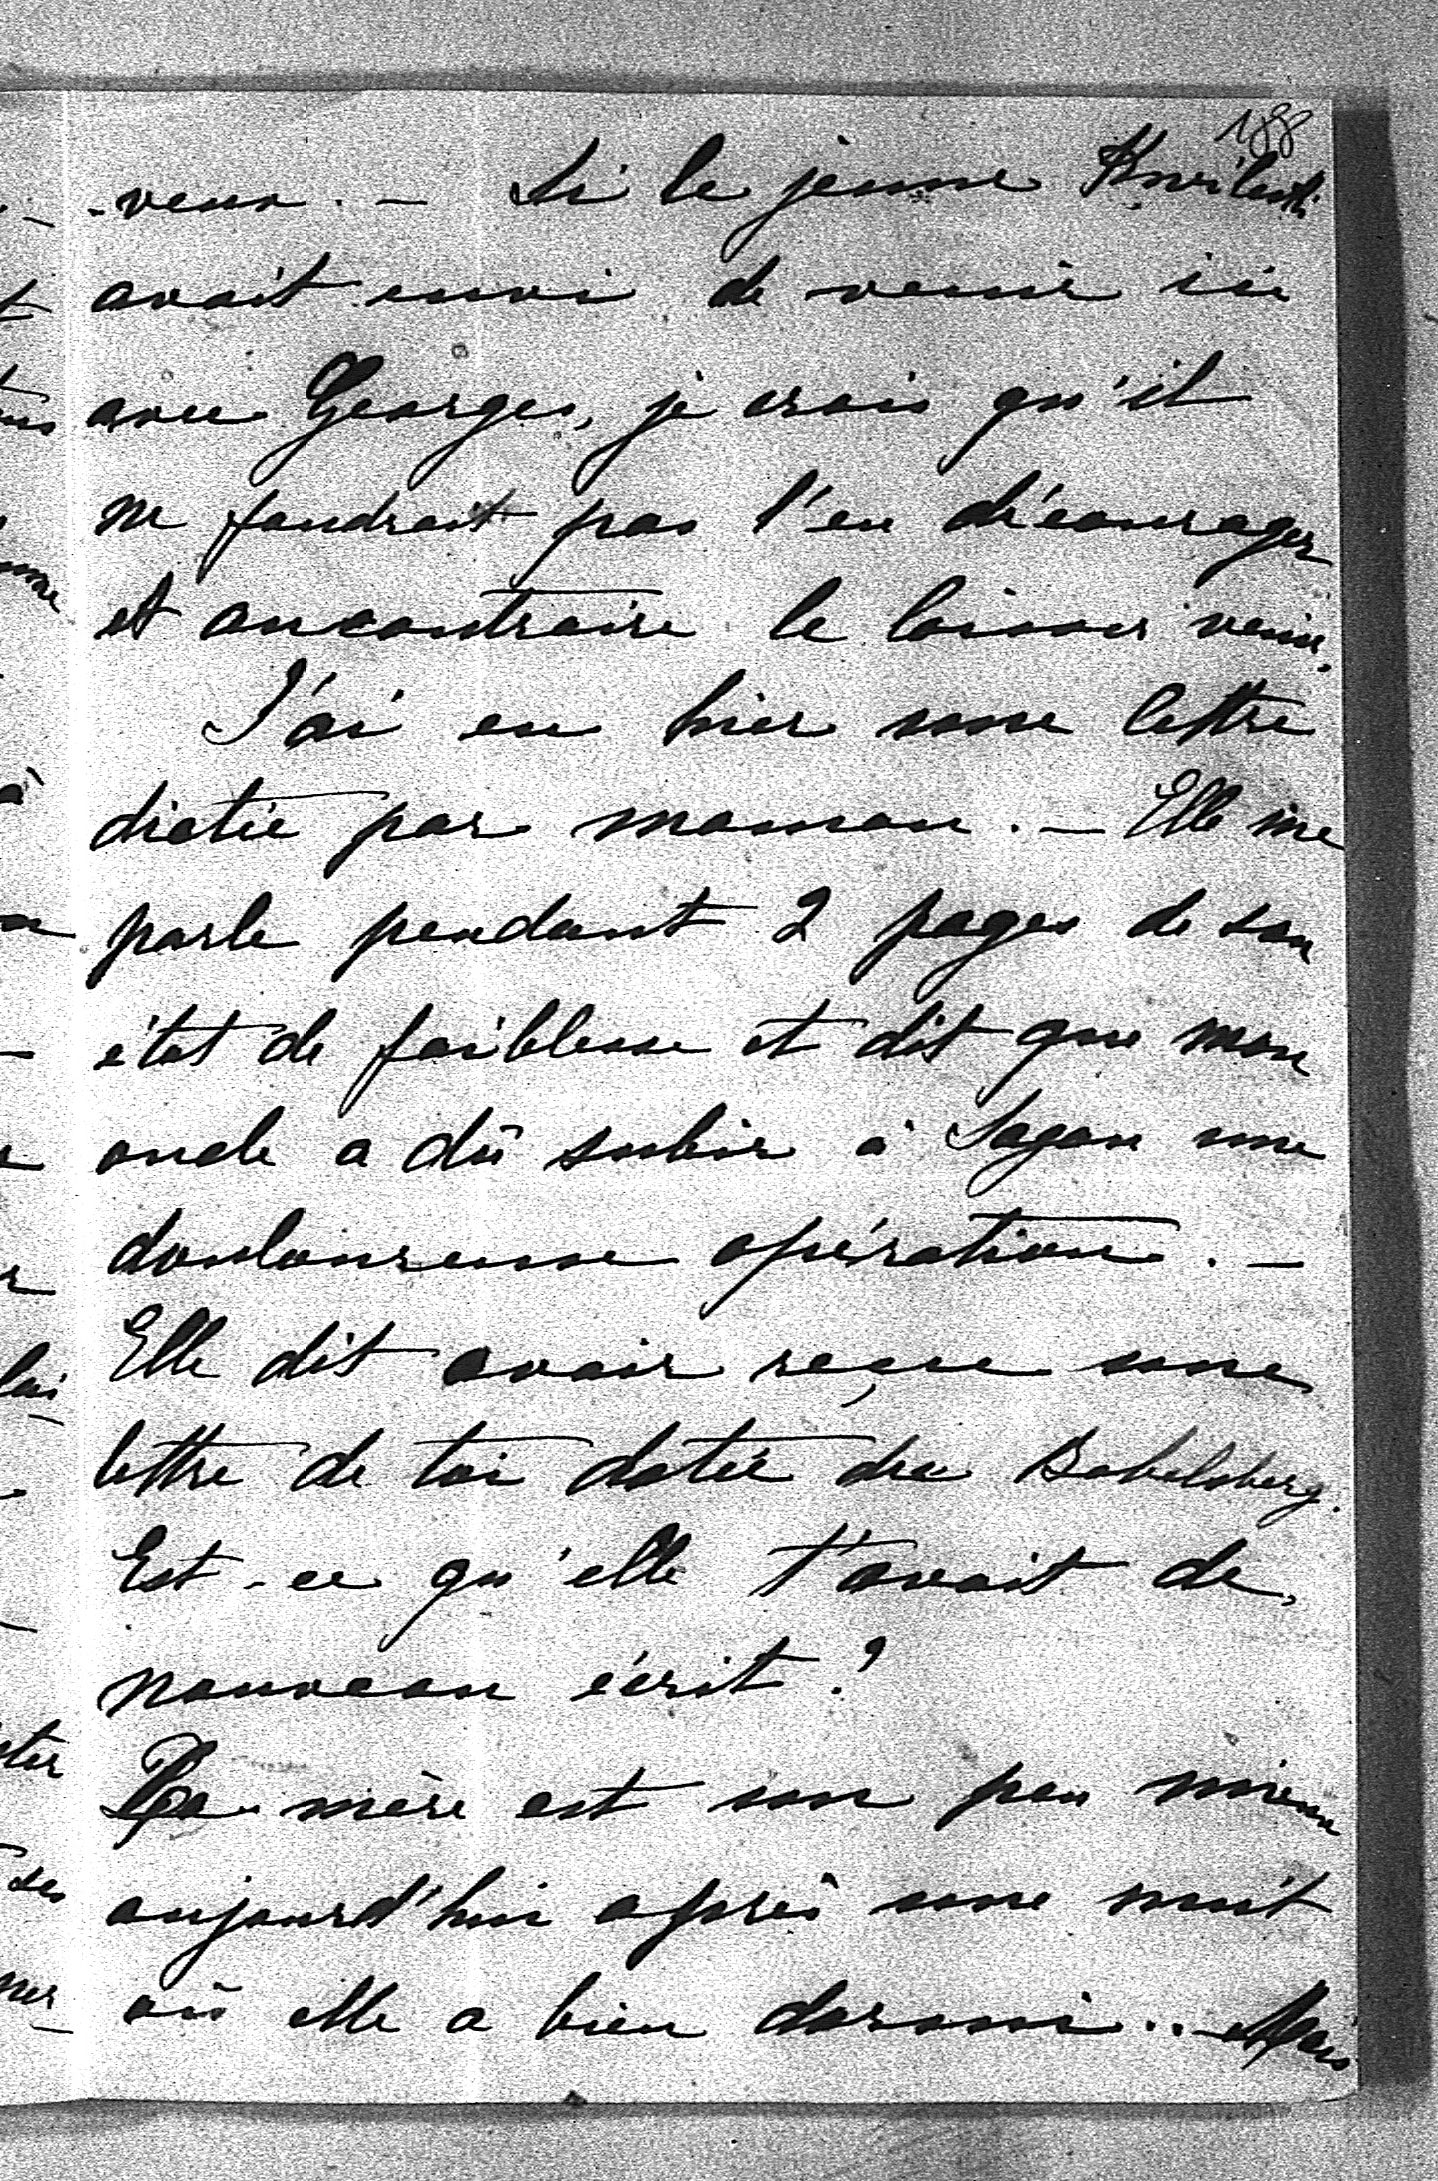 188
-veux. - Si le jeune Kwilecki
avait envi de venir ici
avec Georges, je crois qu'il
ne faudrait pas l'en décourager
et aucontraire le laisser venir.
J'ai eu hier une lettre
dictée par maman. - Elle me
parle pendant 2 pages de son
état de faiblesse et dit que mon
oncle a dû subir à Sagan une
douloureuse opération. -
Elle dit avoir reçue une
lettre de toi datée du Babelsberg.
Est-ce qu'elle t'avait de
nouveau écrit?
Ta mère est un peu mieux
aujourd'hui après une nuit
où elle a bien dormi.. - Mais